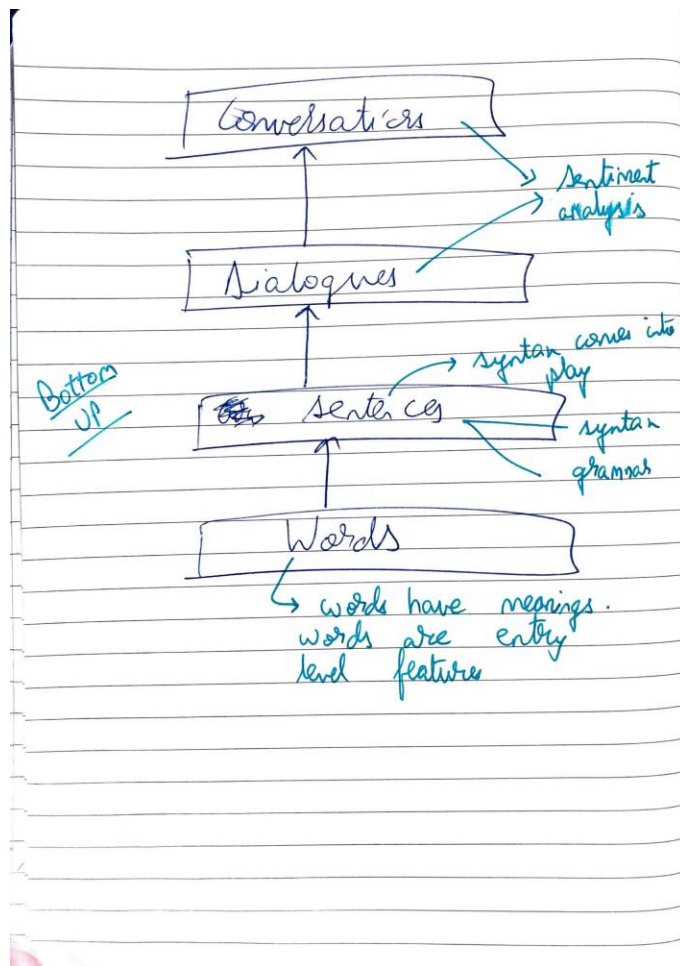 Conversations
sentiment
analysis
Dialogues
syntax comes into
play
Bottom
UP
sentences
syntax
grammar
Words
words have meanings.
words are entry
level features